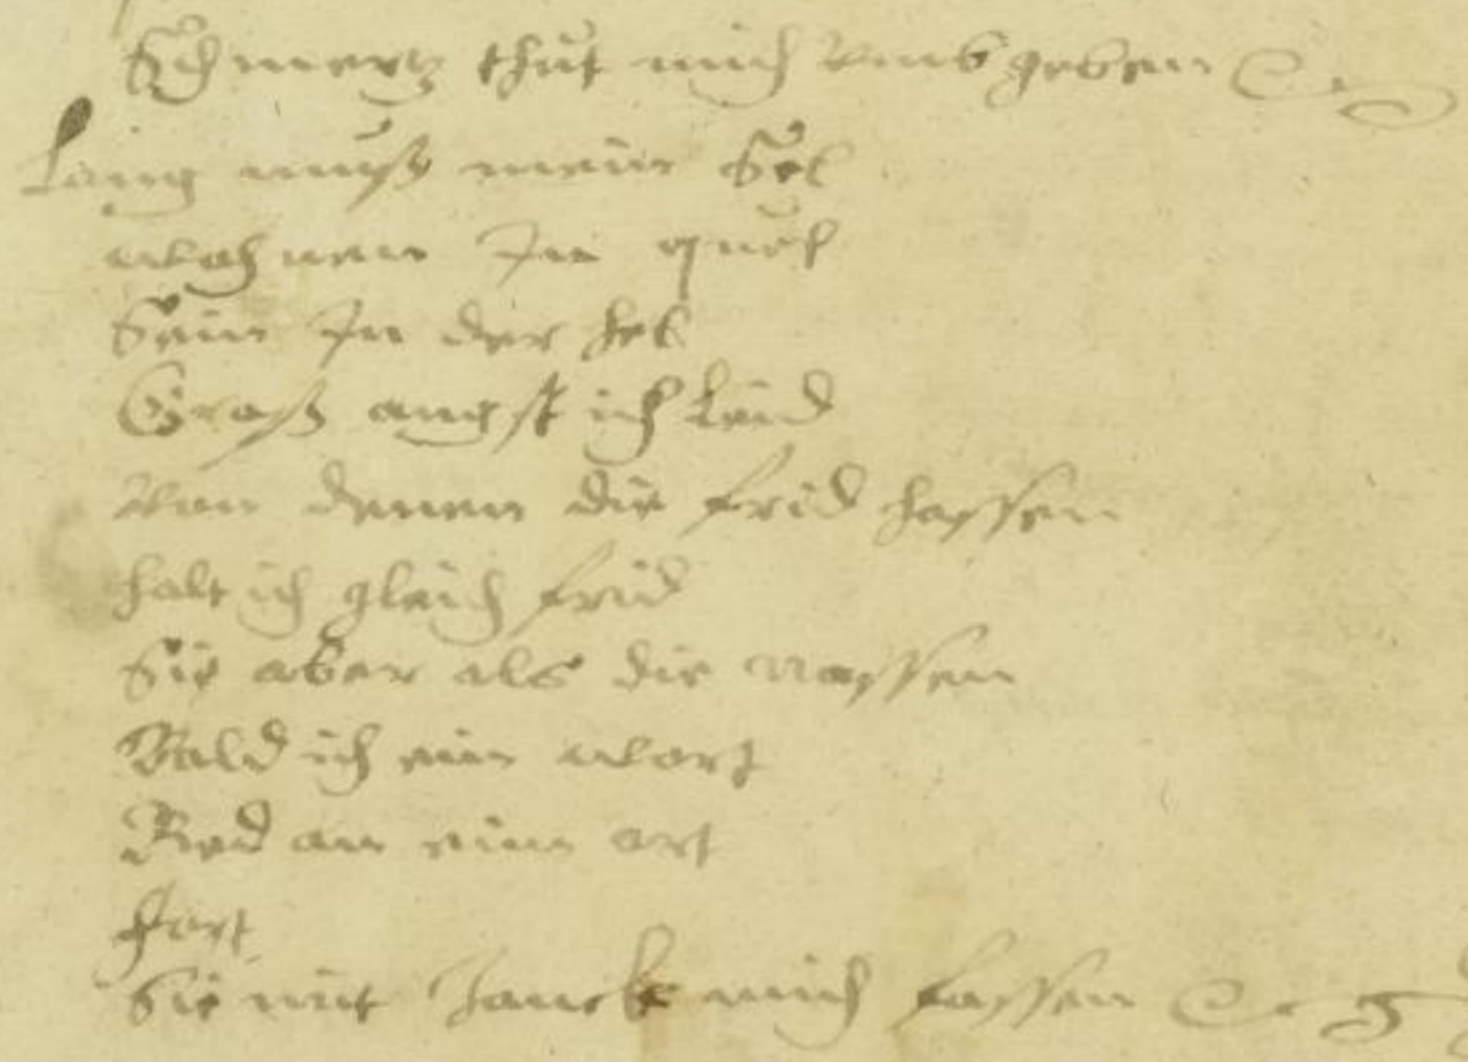 Schmertz thut mich vmbgeben
Lang muß mein Sel
wohnen In quel
Sein In der hel
Groß angst ich Leid
Von denen die frid hassen
halt ich gleich frid
Sie aber als die rassen
Bald ich ein wort
Red an eim ort
fort
Sie mit Zanck mich fassen